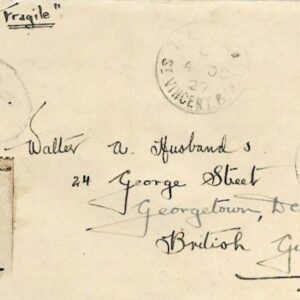 Fragile"
ST VINCENT. B.
27
Walter A. Husbands.
24 George Street
Georgetown, De
British Gu